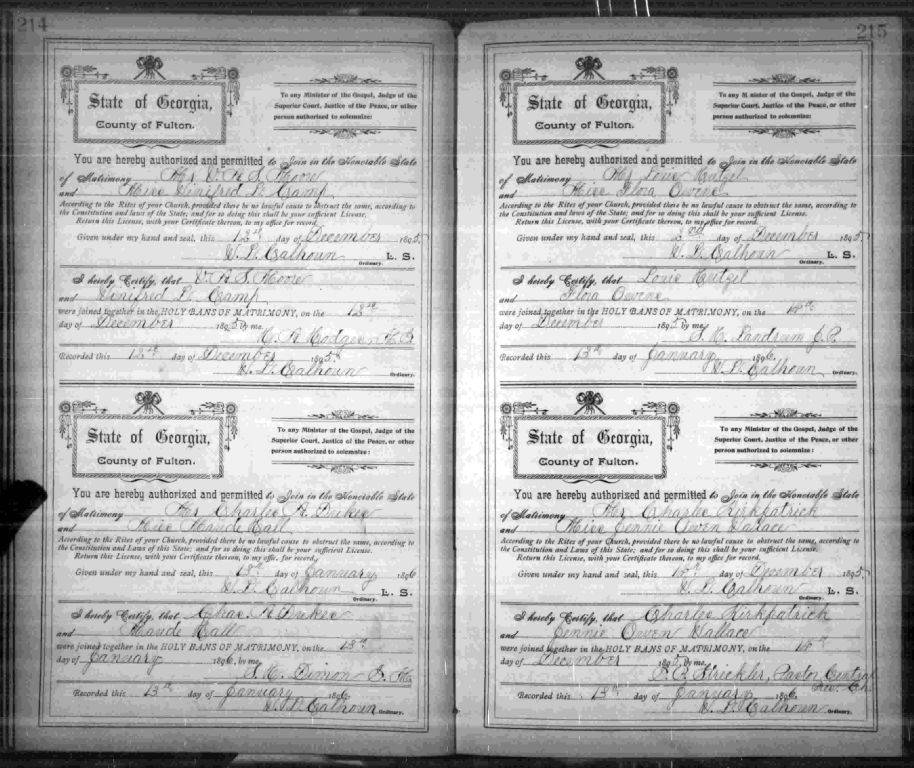 214
State of Georgia,
County of Fulton.
To any Minister of the Gospel, Judge of the
Superior Court, Justice of the Peace, or other
person authorized to solemnize:
You are hereby authorized and permitted to Join in the Honorable State
of Matrimony Mr V. A. S. Moore
and Miss Winifred L. Camp
According to the Rites of your Church, provided there be no lawful cause to obstruct the same, according to
the Constitution and laws of the State; and for so doing this shall be your sufficient License.
Return this License, with your Certificate thereon, to my office for record.
Given under my hand and seal, this 12th day of December 1895.
W. L. Calhoun L. S.
Ordinary.
I hereby Certify, that V. A. S. Moore
and Winifred L. Camp
were joined together in the HOLY BANS OF MATRIMONY, on the 12th
day of December 1895 by me.
Recorded this 12th day of December 1895
W. L. Calhoun Ordinary.
State of Georgia,
County of Fulton.
To any Minister of the Gospel, Judge of the
Superior Court, Justice of the Peace, or other
person authorized to solemnize:
You are hereby authorized and permitted to Join in the Honorable State
of Matrimony Mr Charles A.
and Miss Maude Ball
According to the Rites of your Church, provided there be no lawful cause to obstruct the same, according to
the Constitution and Laws of this State; and for so doing this shall be your sufficient License.
Return this License, with your Certificate thereon, to my office for record.
Given under my hand and seal, this 13th day of January 1896
W. L. Calhoun L. S.
Ordinary.
I hereby Certify, that Chas A
and Maude Ball
were joined together in the HOLY BANS OF MATRIMONY, on the 13th
day of January 1896, by me
Recorded this 13th day of January 1896.
W. L. Calhoun Ordinary.
215
State of Georgia,
County of Fulton.
To any Minister of the Gospel, Judge of the
Superior Court, Justice of the Peace, or other
person authorized to solemnize:
You are hereby authorized and permitted to Join in the Honorable State
of Matrimony Mr Louie Hutzel
and Miss Flora Owens
According to the Rites of your Church, provided there be no lawful cause to obstruct the same, according to
the Constitution and laws of the State; and for so doing this shall be your sufficient License.
Return this License, with your Certificate thereon, to my office for record.
Given under my hand and seal, this 2nd day of December 1895.
W. L. Calhoun L. S.
Ordinary.
I hereby Certify, that Louie Hutzel
and Flora Owens
were joined together in the HOLY BANS OF MATRIMONY, on the
day of December 1895 by me.
S. H. Landrum J. P.
Recorded this 13th day of January 1896.
W. L. Calhoun Ordinary.
State of Georgia,
County of Fulton.
To any Minister of the Gospel, Judge of the
Superior Court, Justice of the Peace, or other
person authorized to solemnize:
You are hereby authorized and permitted to Join in the Honorable State
of Matrimony Mr Charles Kirkpatrick
and Miss Jennie Owen Wallace
According to the Rites of your Church, provided there be no lawful cause to obstruct the same, according to
the Constitution and Laws of this State; and for so doing this shall be your sufficient License.
Return this License, with your Certificate thereon, to my office for record.
Given under my hand and seal, this day of December 1895.
W. L. Calhoun L. S.
Ordinary.
I hereby Certify, that Charles Kirkpatrick
and Jennie Owen Wallace
were joined together in the HOLY BANS OF MATRIMONY, on the
day of December 1895 by me.
Strickler, Pastor Central
Pres. Ch.
Recorded this 13th day of January 1896
W. L. Calhoun Ordinary.